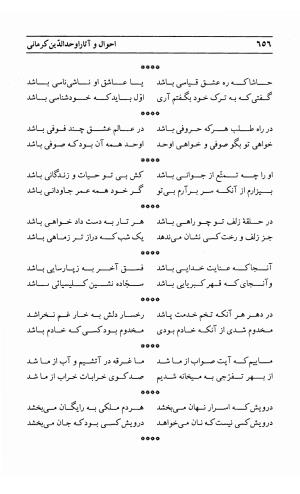 ۶۵۶ احوال و آثار اوحدالدّین کرمانی
****
حاشاکه ره عشق قیاسی باشد یا عاشق او ناشی‌ناسی باشد
گفتی که به ترک خود بگفتم آری اوّل باید که خودشناسی باشد
****
در راه طلب هرکه حروفی باشد در عالم عشق چند فوفی باشد
خواهی تو بگو صوفی و خواهی اوحد اوحد همه آن بود که صوفی باشد
****
او را چه تمتّع از جوانی باشد کش بی تو حیات و زندگانی باشد
بیزارم از آنکه سر برآرم بی‌تو گر خود همه عمر جاودانی باشد
****
در حلقهٔ زلف تو چو راهی باشد هر تار به دست داد خواهی باشد
جز زلف و رخت کسی نشان می‌ندهد یک شب که دراز تر زماهی باشد
****
آنجاکه عنایت خدایی باشد فسق آخر به زپارسایی باشد
وآنجای که قهر کبریایی باشد سجّاده نشین کلیسیائی باشد
****
در دهر هر آنکه تخم خدمت پاشد رخسار دلش به خار غم نخراشد
مخدوم شدی از آنکه خادم بودی مخدوم بود کسی که خادم باشد
****
ماییم که آیت صواب از ما شد ما غرقه در آتشیم و آب از ما شد
از بهر تفرّجی به میخانه شدیم صد کوی خرابات خراب از ما شد
****
درویش که اسرار نهان می‌بخشد هردم ملکی به رایگان می‌بخشد
درویش کسی نیست که نان می‌خواهد درویش کسی بود که جان می‌بخشد
****